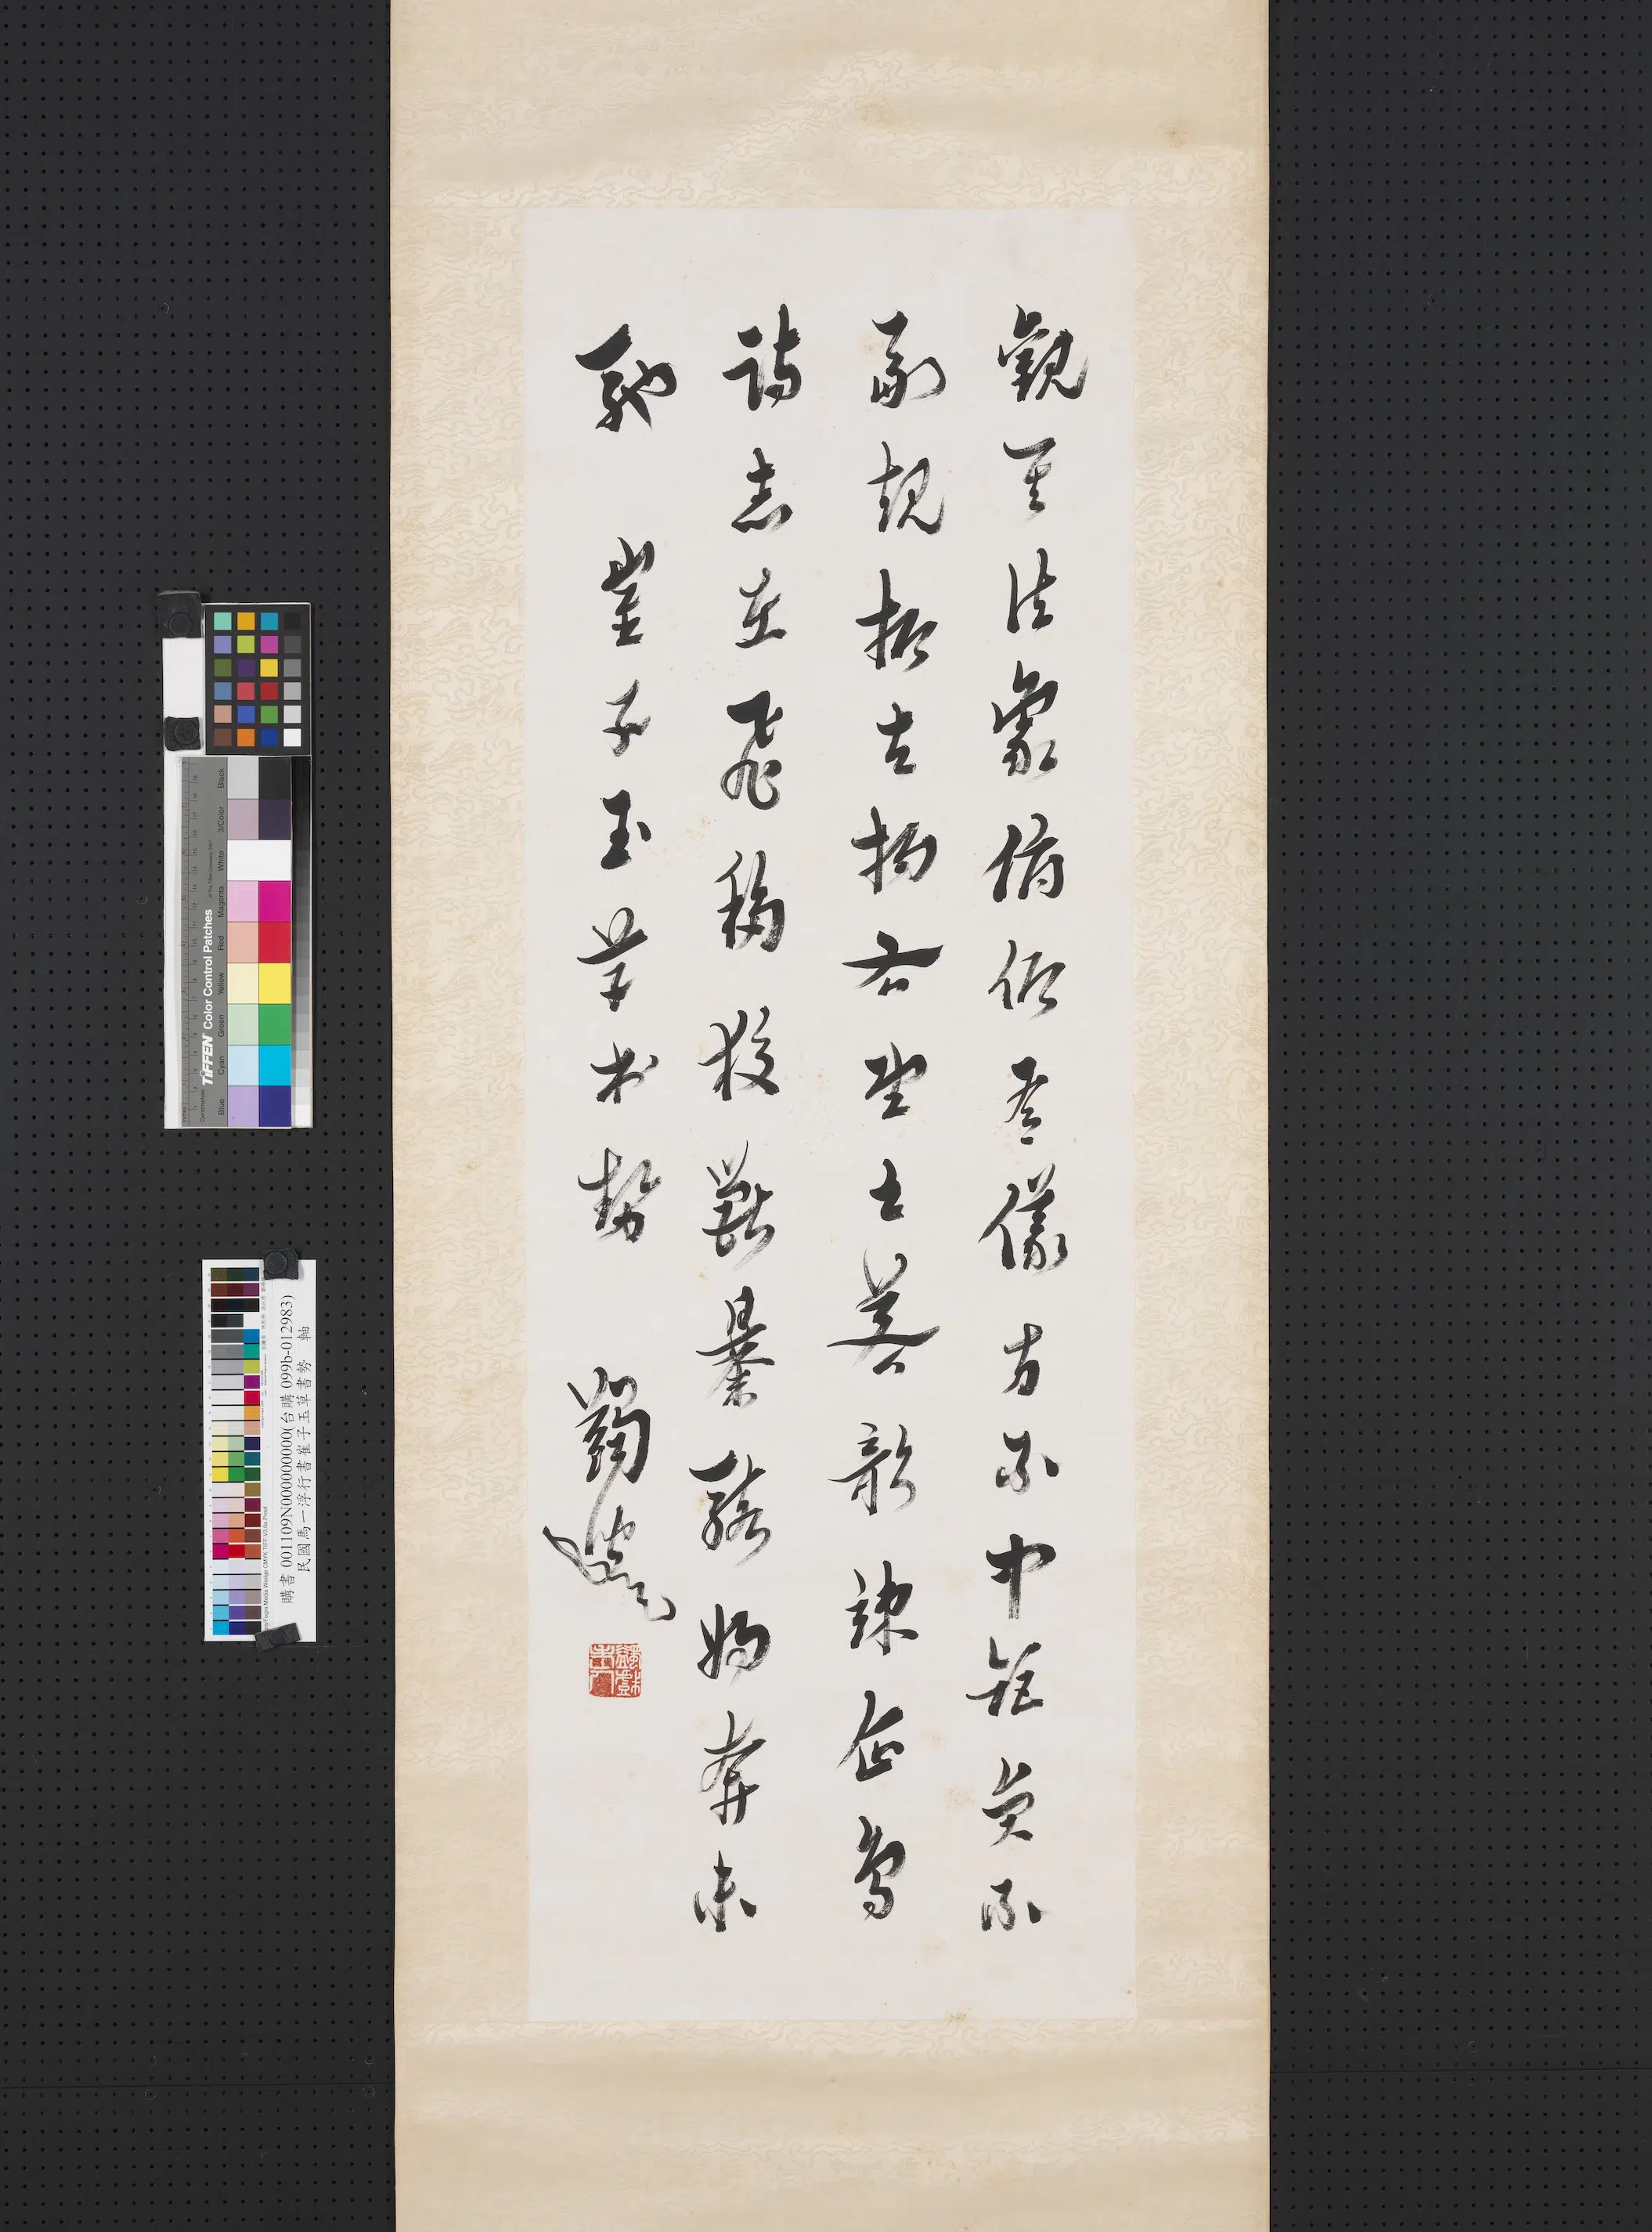 觀其法象俯仰有儀方不中矩員不
副規抑左揚右望之若欹竦企鳥
跱志在飛移狡獸暴駭將奔未
馳 崔子玉草書勢 蠲叟
TIFFEN Color Control Patches
Blue Cyan Green Yellow Red Magenta White 3/Color Black
購書 001109N000000000(台購 099b-012983)
民國馬一浮行書崔子玉草書勢 軸